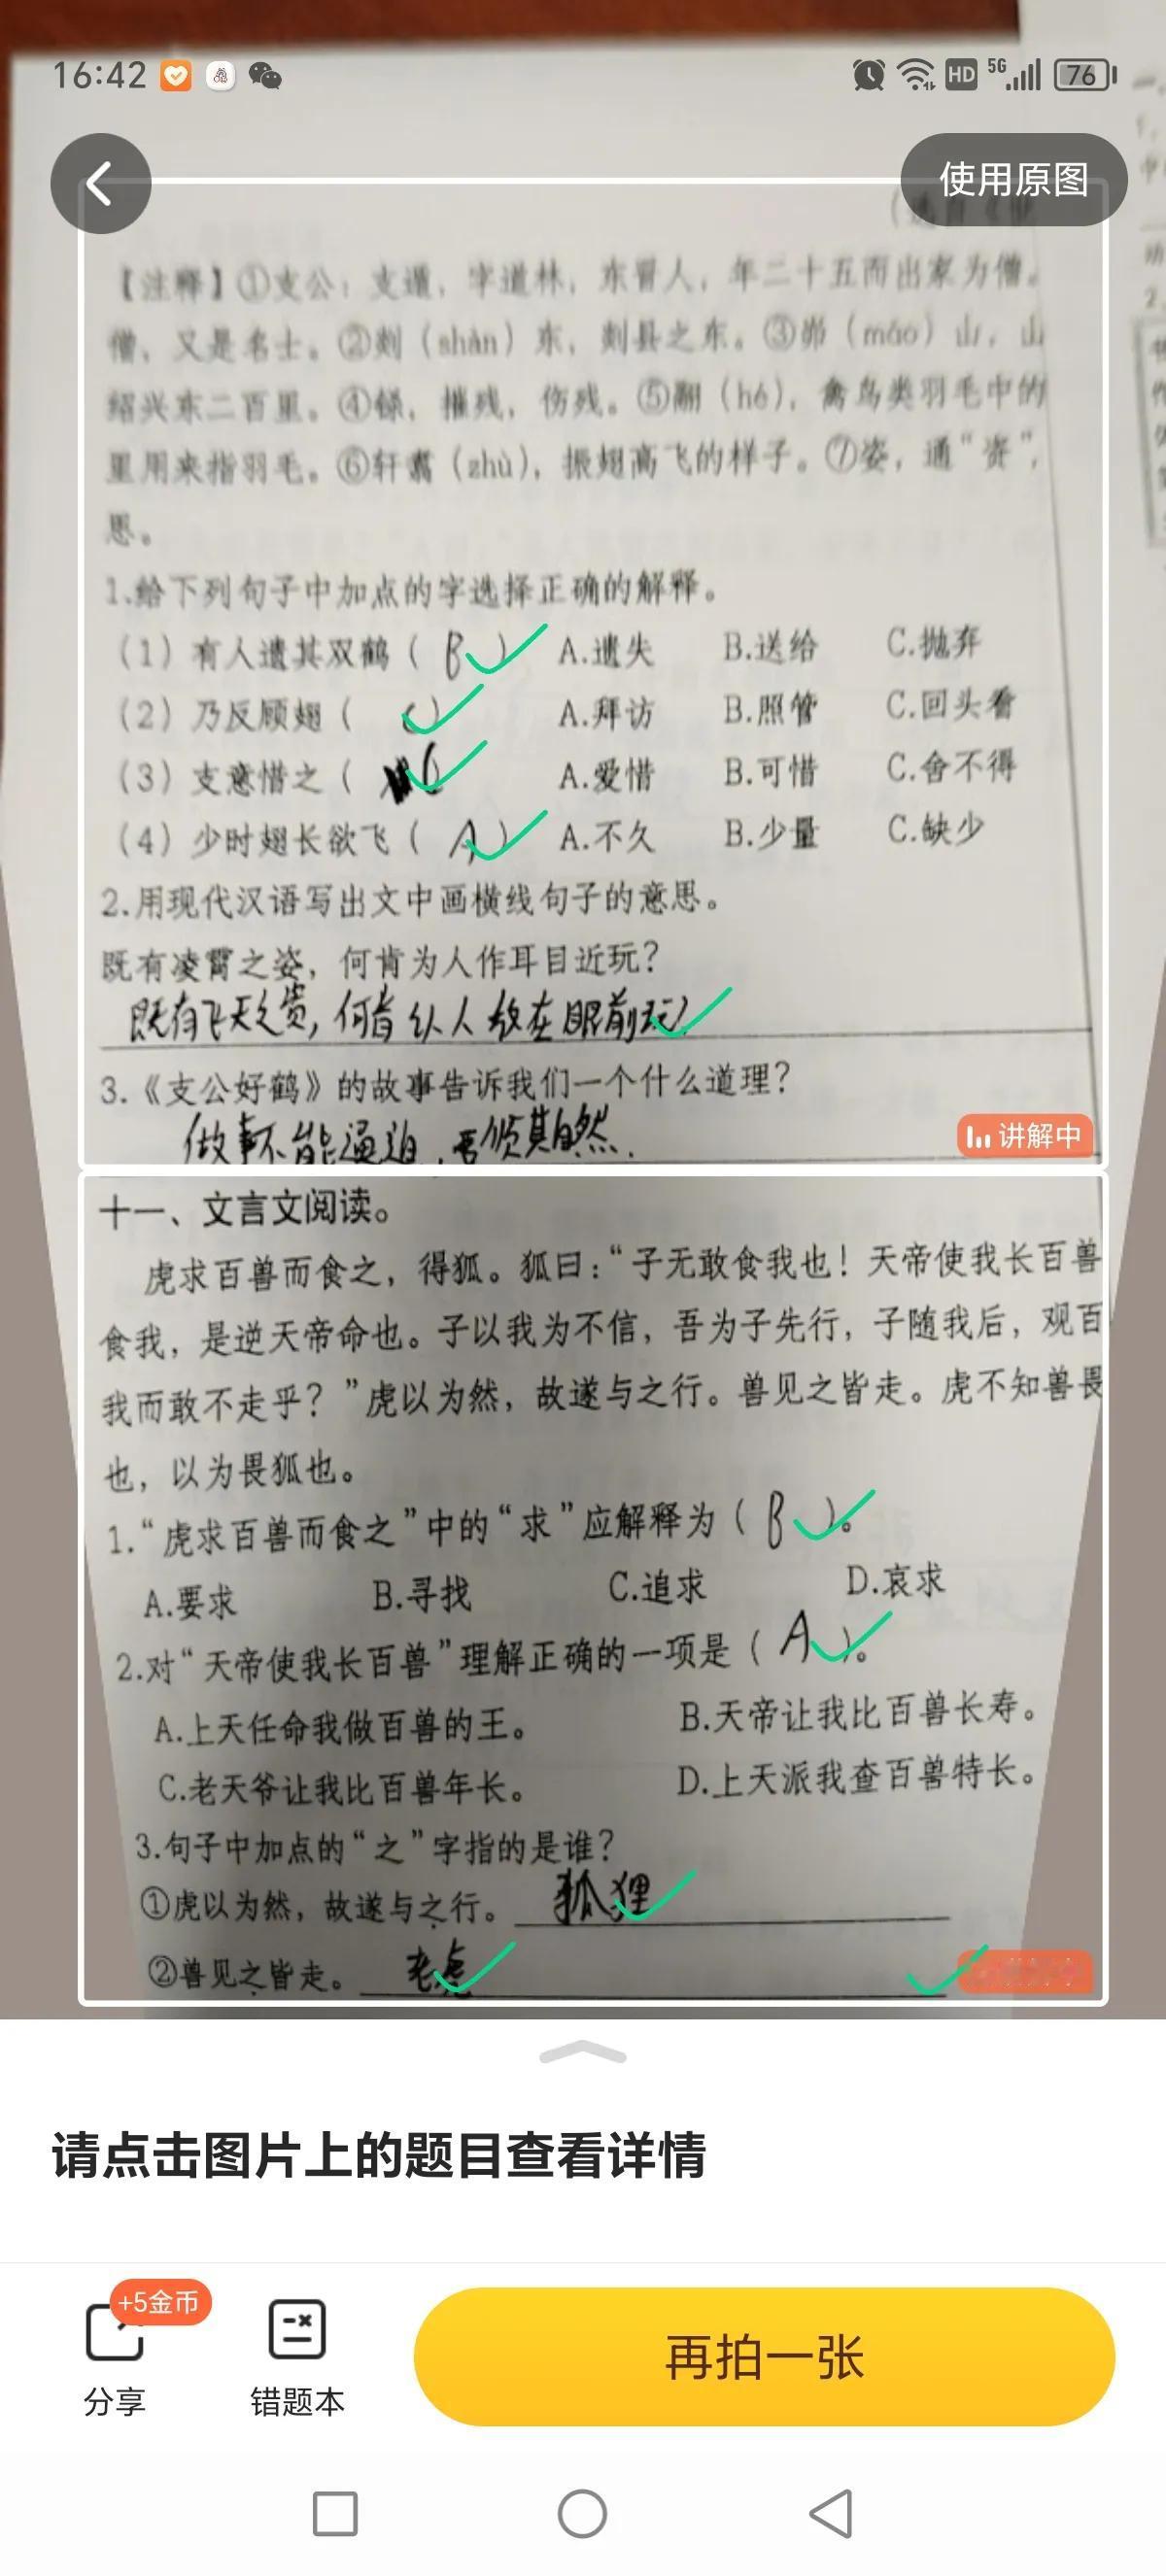 16:42
HD 5G 76
使用原图
【注释】①支公：支遁，字道林，东晋人，年二十五而出家为僧。
僧，又是名士。②剡（shàn）东，剡县之东。③峁（máo）山，山
绍兴东二百里。④铩，摧残，伤残。⑤翮（hé），禽鸟类羽毛中的
里用来指羽毛。⑥轩翥（zhù），振翅高飞的样子。⑦姿，通“资”，
思。
1.给下列句子中加点的字选择正确的解释。
（1）有人遗其双鹤（ B ） A.遗失 B.送给 C.抛弃
（2）乃反顾翅（ C ） A.拜访 B.照管 C.回头看
（3）支意惜之（ A.爱惜 B.可惜 C.舍不得
（4）少时翅长欲飞（ A ） A.不久 B.少量 C.缺少
2.用现代汉语写出文中画横线句子的意思。
既有凌霄之姿，何肯为人作耳目近玩？
既有飞天之资，何肯 人 放在眼前玩
3.《支公好鹤》的故事告诉我们一个什么道理？
做事不能逼迫，要顺其自然.
讲解中
十一、文言文阅读。
虎求百兽而食之，得狐。狐曰：“子无敢食我也！天帝使我长百兽
食我，是逆天帝命也。子以我为不信，吾为子先行，子随我后，观百
我而敢不走乎？”虎以为然，故遂与之行。兽见之皆走。虎不知兽畏
也，以为畏狐也。
1.“虎求百兽而食之”中的“求”应解释为（ B ）。
A.要求 B.寻找 C.追求 D.哀求
2.对“天帝使我长百兽”理解正确的一项是（ A ）。
A.上天任命我做百兽的王。 B.天帝让我比百兽长寿。
C.老天爷让我比百兽年长。 D.上天派我查百兽特长。
3.句子中加点的“之”字指的是谁？
①虎以为然，故遂与之行。 狐狸
②兽见之皆走。 老虎
请点击图片上的题目查看详情
+5金币
分享
错题本
再拍一张